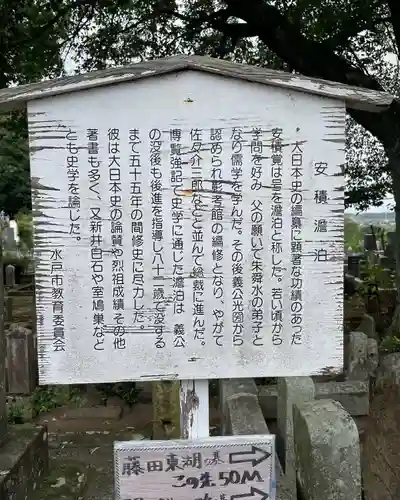 安積澹泊
大日本史の編纂に顕著な功績のあった
安積覚は号を澹泊と称した。若い頃から
学問を好み 父の願いで朱舜水の弟子と
なり儒学を学んだ。その後義公光圀から
認められ彰考館の編修となり、やがて
佐々介三郎などと並んで総裁に進んだ。
博覧強記で史学に通じた澹泊は 義公
の没後も後進を指導し八十二歳で没する
まで五十五年の間修史に尽力した。
彼は大日本史の論賛や烈祖成績その他
著書も多く、又新井白石や室鳩巣など
とも史学を論じた。
水戸市教育委員会
藤田東湖の墓
この先50M